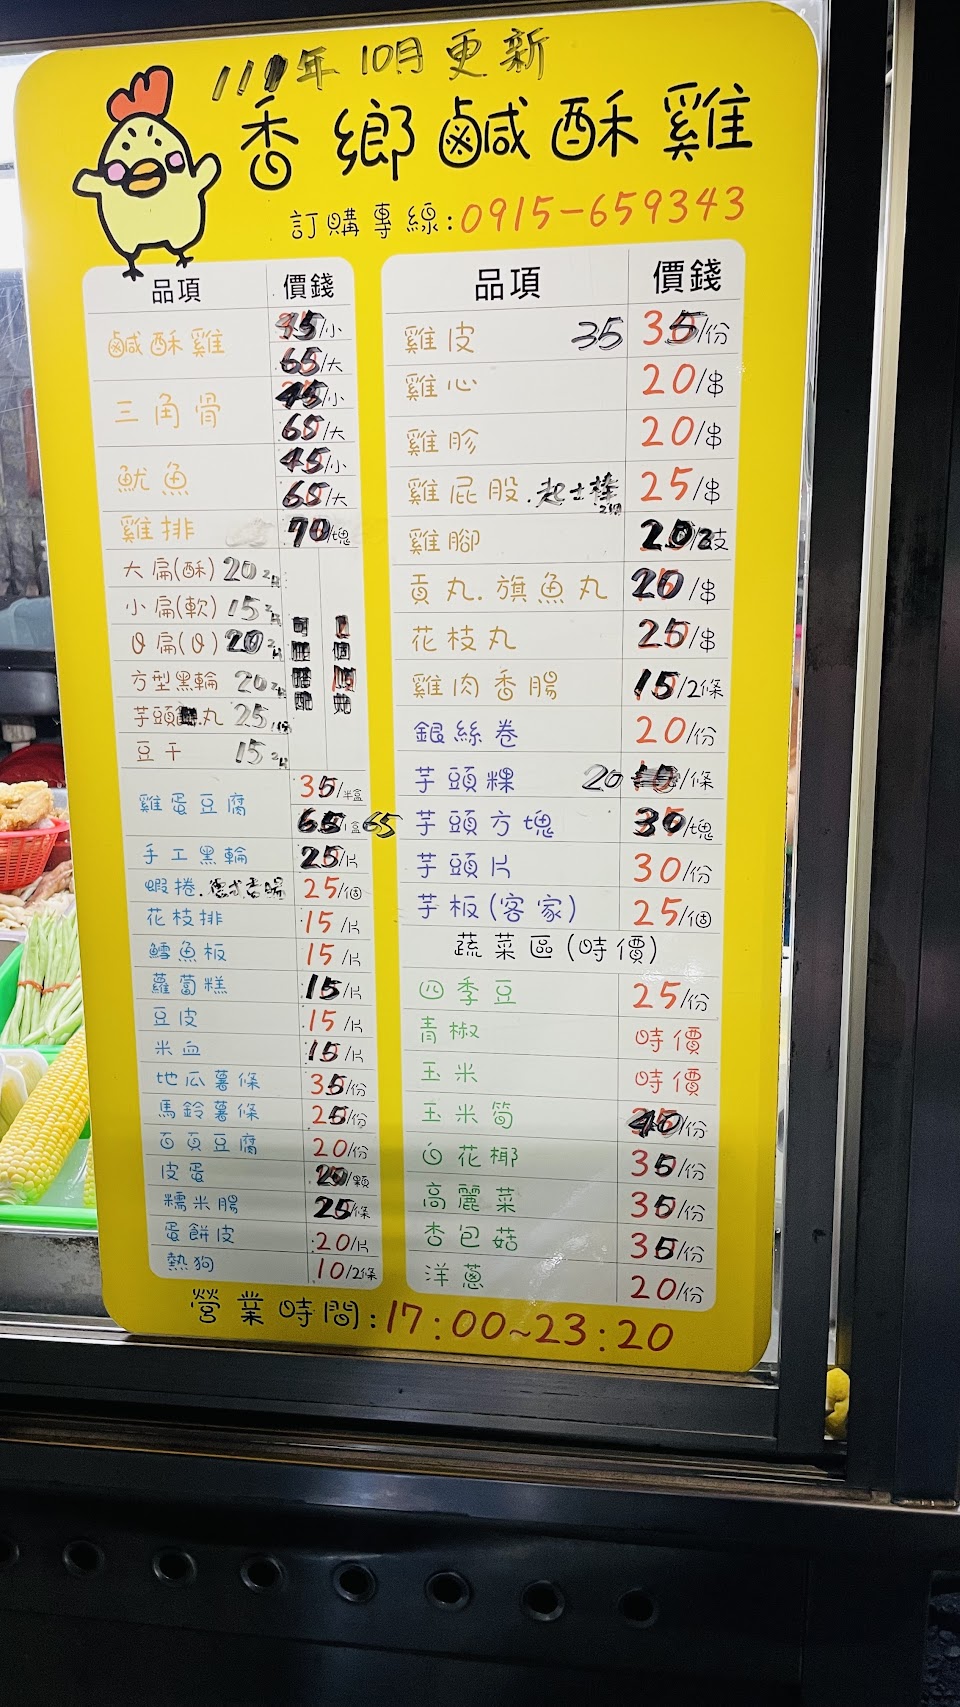 111年10月更新
香鄉鹹酥雞
訂購專線:0915-659343
品項 價錢
鹹酥雞 45/小
65/大
三角骨 45/小
65/大
魷魚 45/小
65/大
雞排 70/塊
大扁(酥) 20
小扁(軟) 15
扁 20
方型黑輪 20
芋頭 丸 25
豆干 15
雞蛋豆腐 35/半盒
65/盒 65
手工黑輪 25/片
蝦捲. 25/個
花枝排 15/片
鱈魚板 15/片
蘿蔔糕 15/片
豆皮 15/片
米血 15/片
地瓜薯條 35/份
馬鈴薯條 25/份
百頁豆腐 20/份
皮蛋 20/顆
糯米腸 25/條
蛋餅皮 20/片
熱狗 10/2條
品項 價錢
雞皮 35 35/份
雞心 20/串
雞胗 20/串
雞屁股.起士棒 25/串
雞腳 20/2支
貢丸.旗魚丸 20/串
花枝丸 25/串
雞肉香腸 15/2條
銀絲卷 20/份
芋頭粿 20 /條
芋頭方塊 30/塊
芋頭片 30/份
芋板(客家) 25/個
蔬菜區(時價)
四季豆 25/份
青椒 時價
玉米 時價
玉米筍 40/份
白花椰 35/份
高麗菜 35/份
杏包菇 35/份
洋蔥 20/份
營業時間:17:00~23:20